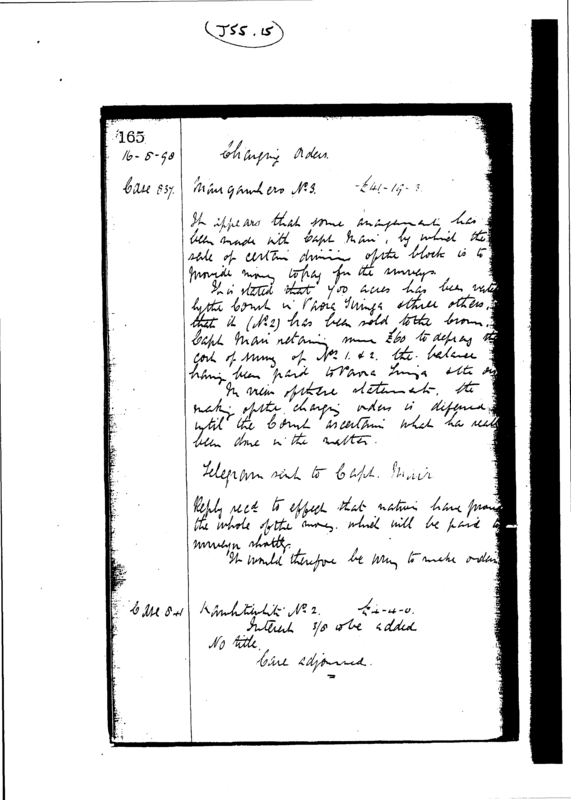 (J55.15)
165
16-5-98 Charging Orders.
Case 837. No 3. £41-19-3.
It appears that some arrangement has
been made with Capt Mair, by which the
sale of certain division of the block is to
provide money to pay for the surveys
It is stated that 400 acres has been
by the Court in & three others,
that it (No 2) has been sold to the Crown,
Capt Mair retaining some £60 to defray the
cost of survey of No 1. & 2. the balance
having been paid to &
In view of these statements, the
making of the charging orders is deferred
until the Court ascertain what has
been done in the matter.
Telegram sent to Capt. Mair
Reply recd to effect that natives have
the whole of the money which will be paid
surveyor shortly.
It would therefore be wrong to make orders
Case No 2. £4-4-0.
Interest 5/8 to be added
No title.
Case adjourned.